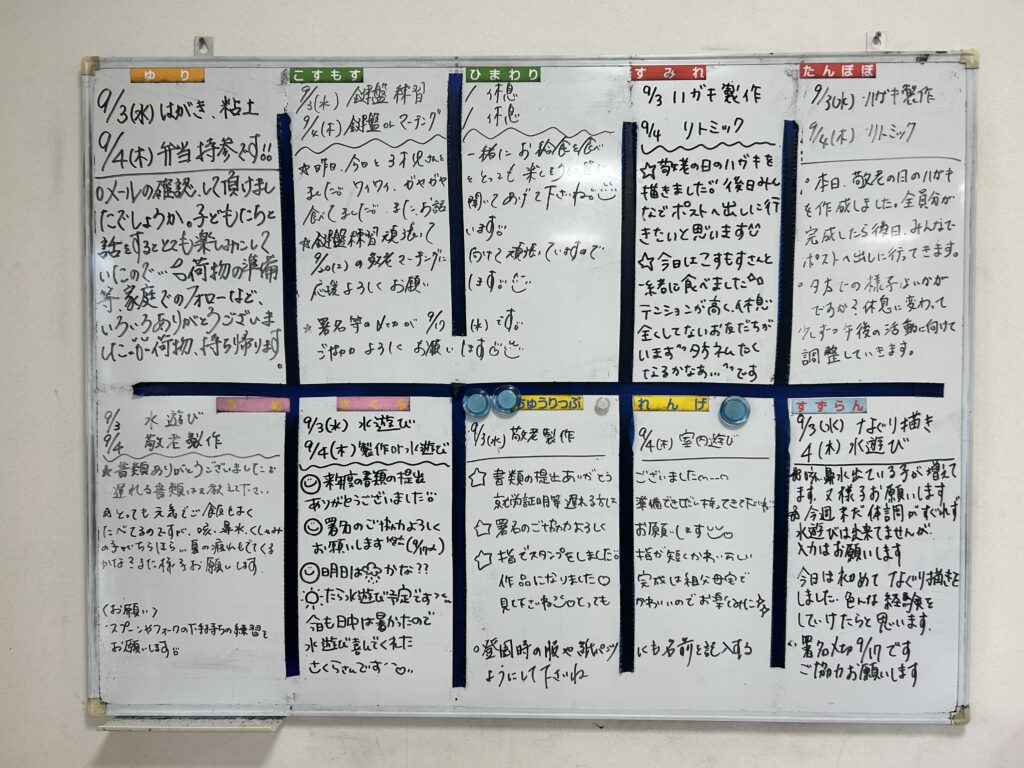 ゆり
9/3(水) はがき、粘土
9/4(木) 弁当持参です!!
○メールの確認、して頂けまし
たでしょうか。子どもたちと
話をするととても楽しみにして
いたので… 荷物の準備
等 家庭でのフォローなど、
いろいろありがとうございま
した 荷物、持ち帰ります。
こすもす
9/3(水) 鍵盤練習
9/4(木) 鍵盤orマーチング
☆昨日、今日と3才児さんと
食べました
ワイワイ、ガヤガヤ
お話
☆鍵盤練習頑張って
9/20(土)の敬老マーチングに
応援よろしくお願い
☆署名等の〆切が 9/17
ご協力よろしくお願い
ひまわり
/ 休息
/ 休息
一緒にお給食を食べ
とっても楽しそう
聞いてあげて下さいね。
います。
向けて頑張っていますので
します。
(水)です。
します
すみれ
9/3 ハガキ製作
9/4 リトミック
☆敬老の日のハガキを
描きました 後日みん
なでポストへ出しに行
きたいと思います
☆今日はこすもすさんと
一緒に食べました
テンションが高く、休息
全くしてないお友だちが
います タ方ネムたく
なるかなあ… です
たんぽぽ
9/3(水) ハガキ製作
9/4(木) リトミック
○本日、敬老の日のハガキ
を作成しました。全員分が
完成したら後日、みんなで
ポストへ出しに行ってきます。
○夕方での様子はいかが
ですか？休息に変わって
少しずつ午後の活動に向けて
調整していきます。
うめ
9/3 水遊び
9/4 敬老製作
★書類ありがとうございました
遅れる書類は教えて下さい
☆とっても元気でご飯もよく
たべてるのですが、咳、鼻水、くしゃみ
の子がちらほら… 夏の疲れもでてくる
かなまた様子お願いします.
〈お願い〉
・スプーンやフォークの下持ちの練習を
お願いします
さくら
9/3(水) 水遊び
9/4(木) 製作or水遊び
来年度の書類の提出
ありがとうございました
署名のご協力よろしく
お願いします (9/17〆)
明日は かな??
たら水遊び予定です
今日も日中は暑かったので
水遊び喜んでくれた
さくらさんです
ちゅうりっぷ
9/3(水) 敬老製作
☆書類の提出ありがとう
就労証明等遅れる方
☆署名のご協力よろしく
☆指でスタンプをしました
作品になりました♡
見て下さいね とっても
○登園時の服や紙パンツ
ようにして下さいね
れんげ
9/4(木) 室内遊び
ございましたm--m
準備できしだい持ってきて下さいね
お願いします
指が短くかわいらしい
完成は祖父母宅で
かわいいのでお楽しみに
にも名前を記入する
すずらん
9/3(水) なぐり描き
4(木) 水遊び
☆咳、鼻水出ている子が増えて
ます。又様子お願いします
☆今週まだ体調がすぐれず
水遊びは出来てませんが、
入力はお願いします
今日は初めてなぐり描きを
しました.色んな経験を
していけたらと思います.
署名〆切 9/17です
ご協力お願いします